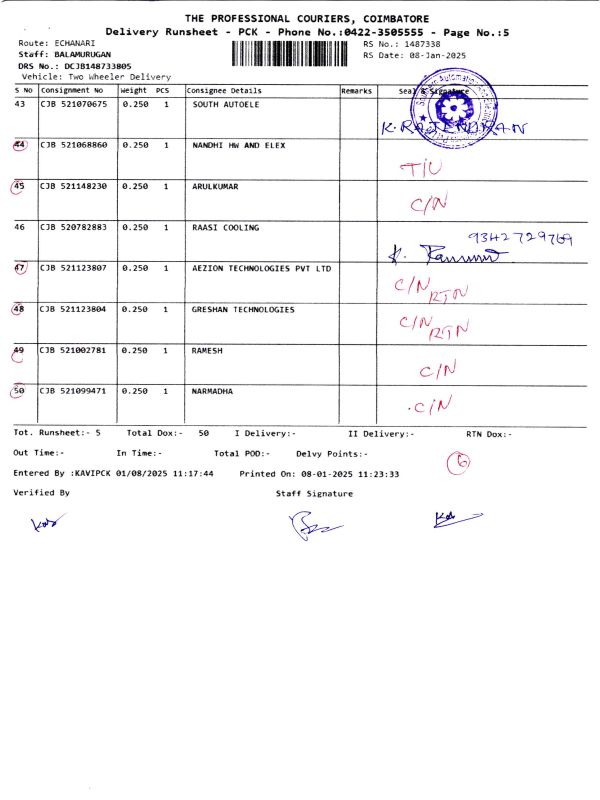 THE PROFESSIONAL COURIERS, COIMBATORE
Delivery Runsheet - PCK - Phone No.:0422-3505555 - Page No.:5
Route: ECHANARI RS No.: 1487338
Staff: BALAMURUGAN RS Date: 08-Jan-2025
DRS No.: DCJB148733805
Vehicle: Two Wheeler Delivery
S No Consignment No Weight PCS Consignee Details Remarks Seal & Signature
43 CJB 521070675 0.250 1 SOUTH AUTOELE
K. RAJENDRAN
44 CJB 521068860 0.250 1 NANDHI HW AND ELEX
T/U
45 CJB 521148230 0.250 1 ARULKUMAR
C/N
46 CJB 520782883 0.250 1 RAASI COOLING
9342729769
47 CJB 521123807 0.250 1 AEZION TECHNOLOGIES PVT LTD
C/N RTN
48 CJB 521123804 0.250 1 GRESHAN TECHNOLOGIES
C/N RTN
49 CJB 521002781 0.250 1 RAMESH
C/N
50 CJB 521099471 0.250 1 NARMADHA
C/N
Tot. Runsheet:- 5 Total Dox:- 50 I Delivery:- II Delivery:- RTN Dox:-
Out Time:- In Time:- Total POD:- Delvy Points:-
6
Entered By :KAVIPCK 01/08/2025 11:17:44 Printed On: 08-01-2025 11:23:33
Verified By Staff Signature